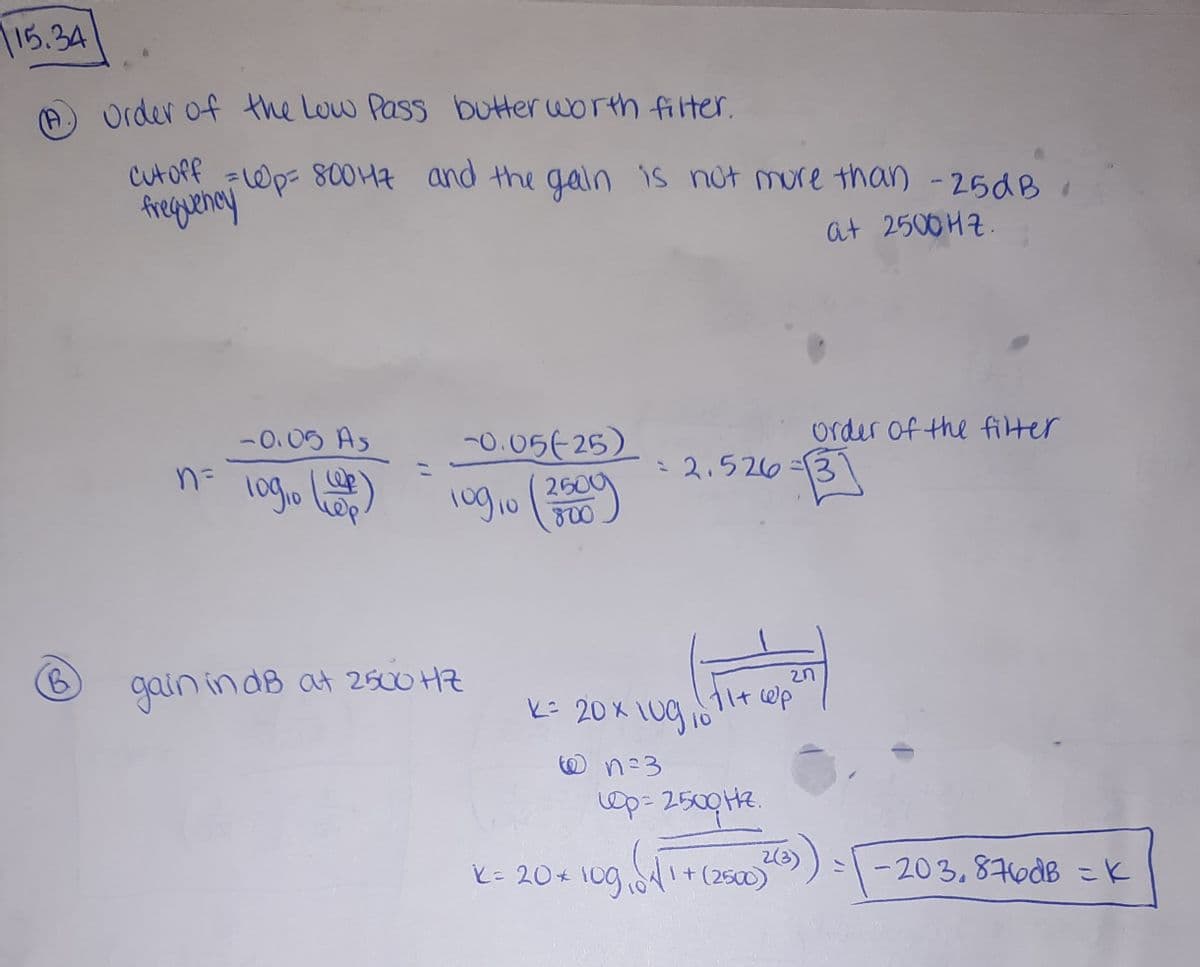 15.34
(A.) Order of the Low Pass butterworth filter.
cutoff frequency = ωp = 800Hz and the gain is not more than -25dB
at 2500Hz.
order of the filter
n = -0.05 As / log10 (ωp/ωp) = -0.05(-25) / log10 (2500/800) = 2.526 = 3
(B) gain in dB at 2500Hz
K = 20 x log10 (1/√1+ωp^2n)
@ n=3
ωp = 2500Hz.
K = 20 * log10 (1/√1+(2500)^2(3)) = -203.876dB = K